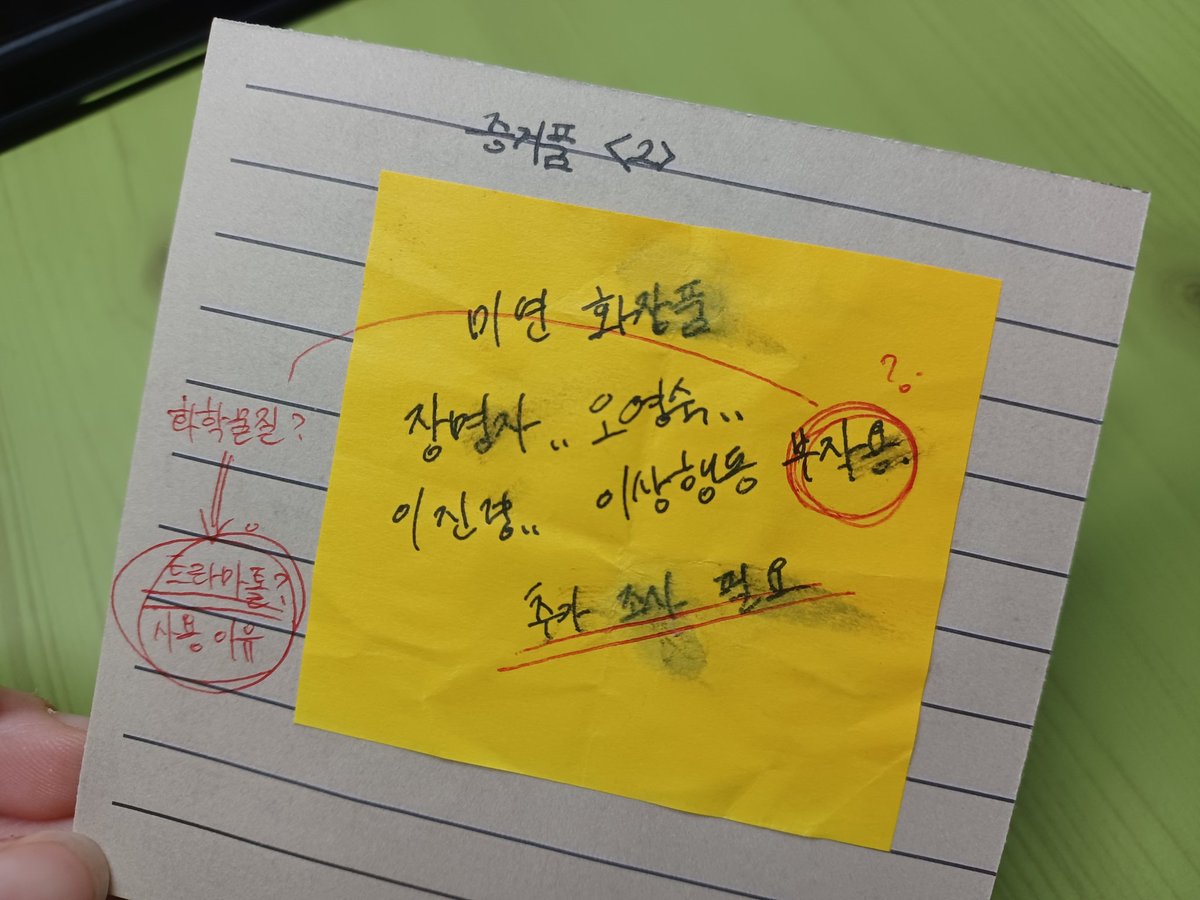 증거품 <2>
미연 화장품
장명자.. 오영숙..
이진경.. 이상행동 부작용.
?
추가 조사 필요
화학물질?
트라마톨?
사용 이유